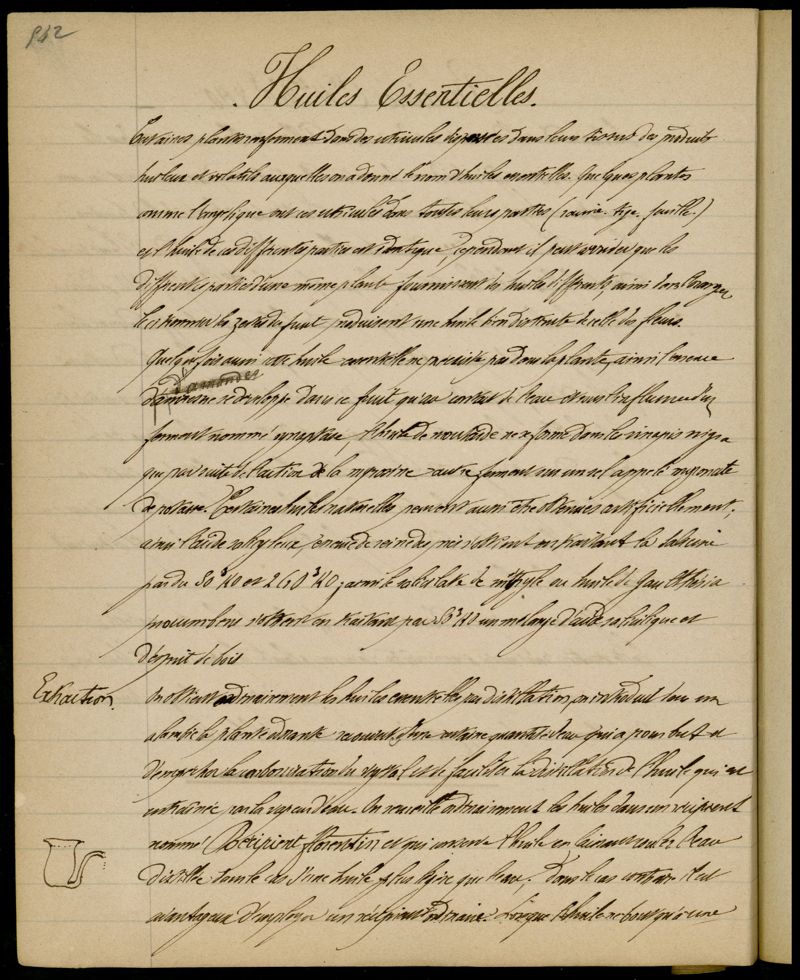 942
Huiles Essentielles.
Certaines plantes renferment dans des utricules disposées dans leurs tissus des produits
huileux et volatils auxquelles on a donné le nom d'huiles essentielles. Quelques plantes
comme l'angélique ont ces utricules dans toutes leurs parties (racine. tige. feuille.)
et l'huile de ces différentes parties est identique, cependant il peut arriver que les
différentes parties d'une même plante fournissent des huiles différentes, ainsi dans l'oranger
le citronnier les zestes du fruit produisent une huile bien distincte de celle des fleurs.
Quelquefois aussi cette huile essentielle ne préexiste pas dans la plante, ainsi l'essence
d'amandes
se développe dans ce fruit qu'au contact de l'eau et sous l'influence d'un
ferment nommé synaptase, l'huile de moutarde ne se forme dans les sinapis nigra
que par suite de l'action de la myrosine autre ferment sur un sel appelé myronate
de potasse. Certaines huiles naturelles peuvent aussi être obtenues artificiellement;
ainsi l'acide salicyleux essence de reine des prés s'obtient en traitant la salicine
par du SO³HO et 2CrO³KO; ainsi le salicylate de méthyle ou huile de Gaultheria
procumbens s'obtient en traitant par SO³HO un mélange d'acide salicylique et
d'esprit de bois
Extraction.
On obtient ordinairement les huiles essentielles par distillation, on introduit dans un
alambic la plante odorante recouverte d'une certaine quantité d'eau qui a pour but et
d'empêcher la carbonisation du végétal et de faciliter la distillation de l'huile, qui est
entraînée par la vapeur d'eau. On recueille ordinairement les huiles dans un récipient
nommé Récipient florentin et qui conserve l'huile en laissant couler l'eau
distillée dans le cas d'une huile plus légère que l'eau; Dans le cas contraire il est
avantageux d'employer un récipient ordinaire. Lorsque l'huile ne bout qu'à une